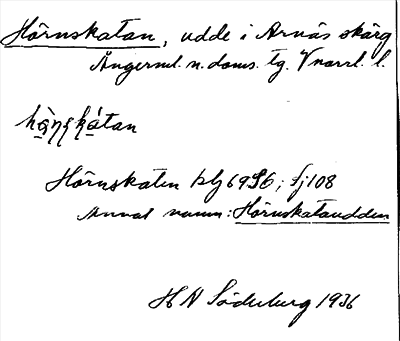 Hörnskatan, udde i Arnäs skärg
Ångerml. n. doms. tg. Vnorrl. l.
Hörnskaten blg 69S6; Sj108
Annat namn: Hörnskatudden
H N Söderberg 1936